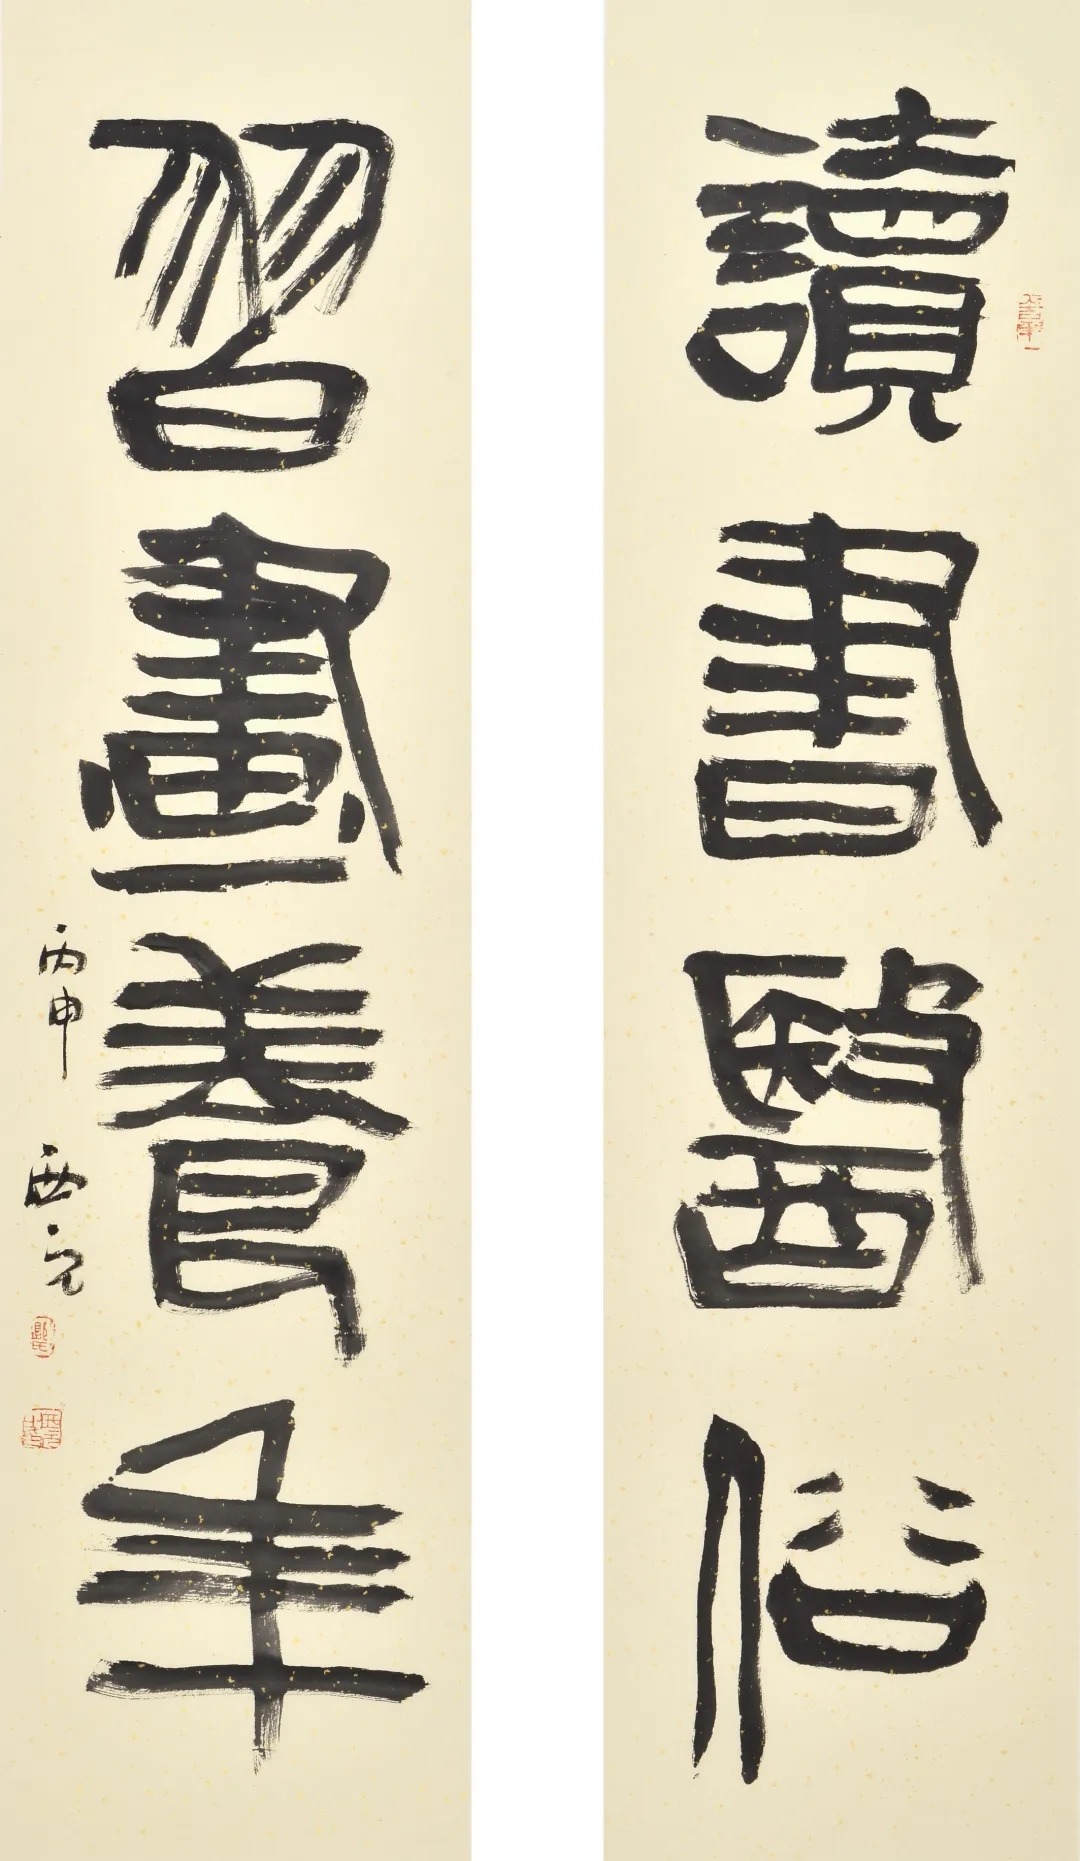 讀書醫俗
習畫養年
丙申 西元